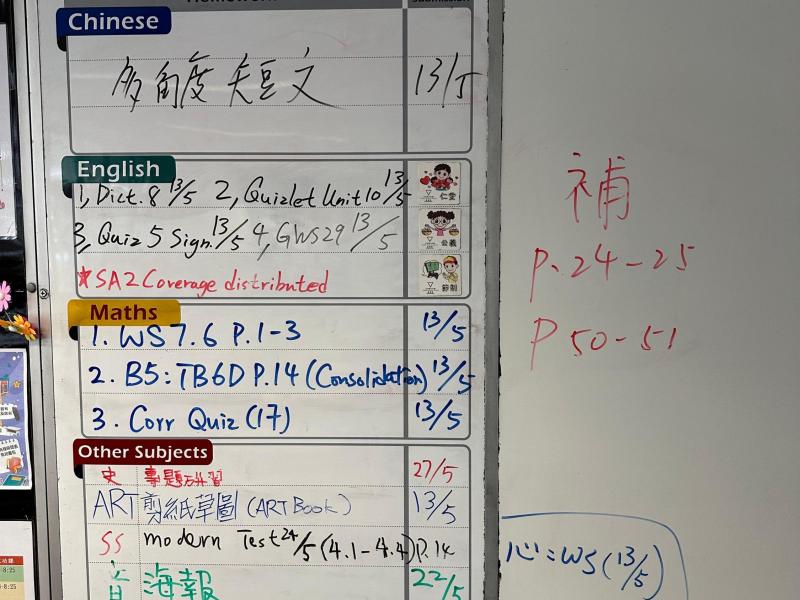 Chinese
多角度短文 13/5
English
1, Dict. 8 13/5 2, Quizlet Unit 10 13/5
仁愛
3, Quiz 5 Sign. 13/5 4, GWS29 13/5
公義
*SA2 Coverage distributed
節制
Maths
1. WS 7.6 P.1-3 13/5
2. B5: TB6D P.14 (Consolidation) 13/5
3. Corr Quiz (17) 13/5
Other Subjects
史 專題研習 27/5
ART 剪紙草圖 (ART Book) 13/5
SS modern Test 24/5 (4.1-4.4) P.14
音 海報 22/5
補
P.24-25
P 50-51
心: WS (13/5)